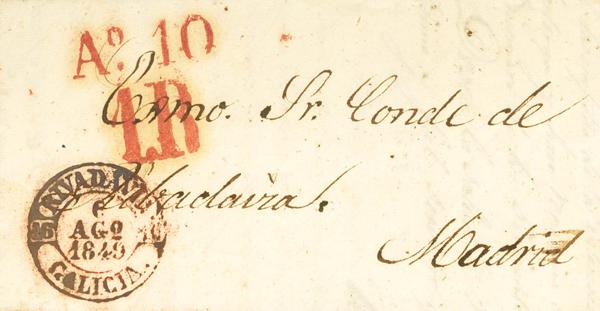 Aº. 10
1R
Exmo. Sr. Conde de
Rivadavia.
Madrid
6
AGO
1849
GALICIA.